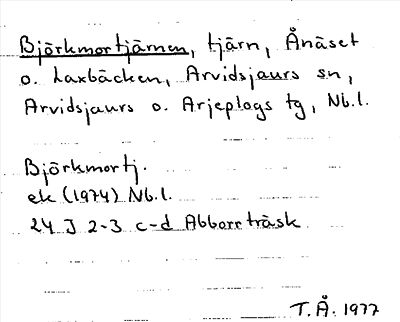 Björkmortjärnen, tjärn, Ånäset
o. Laxbäcken, Arvidsjaurs sn,
Arvidsjaurs o. Arjeplogs tg, Nb.l.
Björkmortj.
ek (1974) Nb.l.
24 J 2-3 c-d Abborrträsk
T.Å. 1977